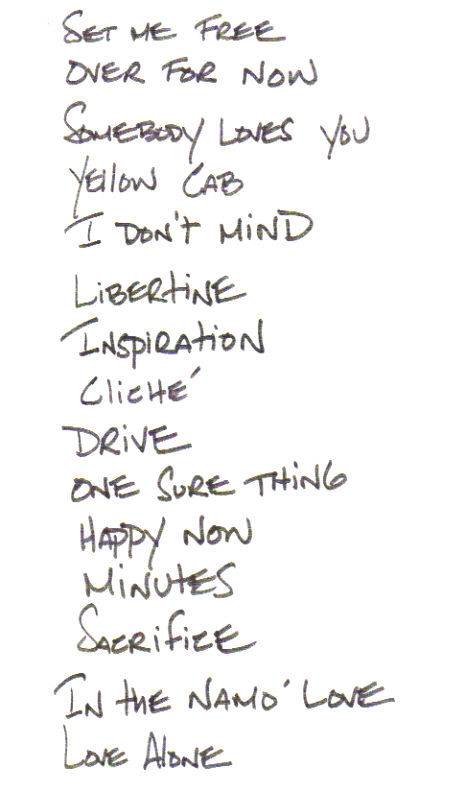 Set me free
Over for now
Somebody loves you
Yellow Cab
I don't mind
Libertine
Inspiration
Cliché
Drive
One sure thing
Happy now
Minutes
Sacrifice
In the namo' love
Love Alone